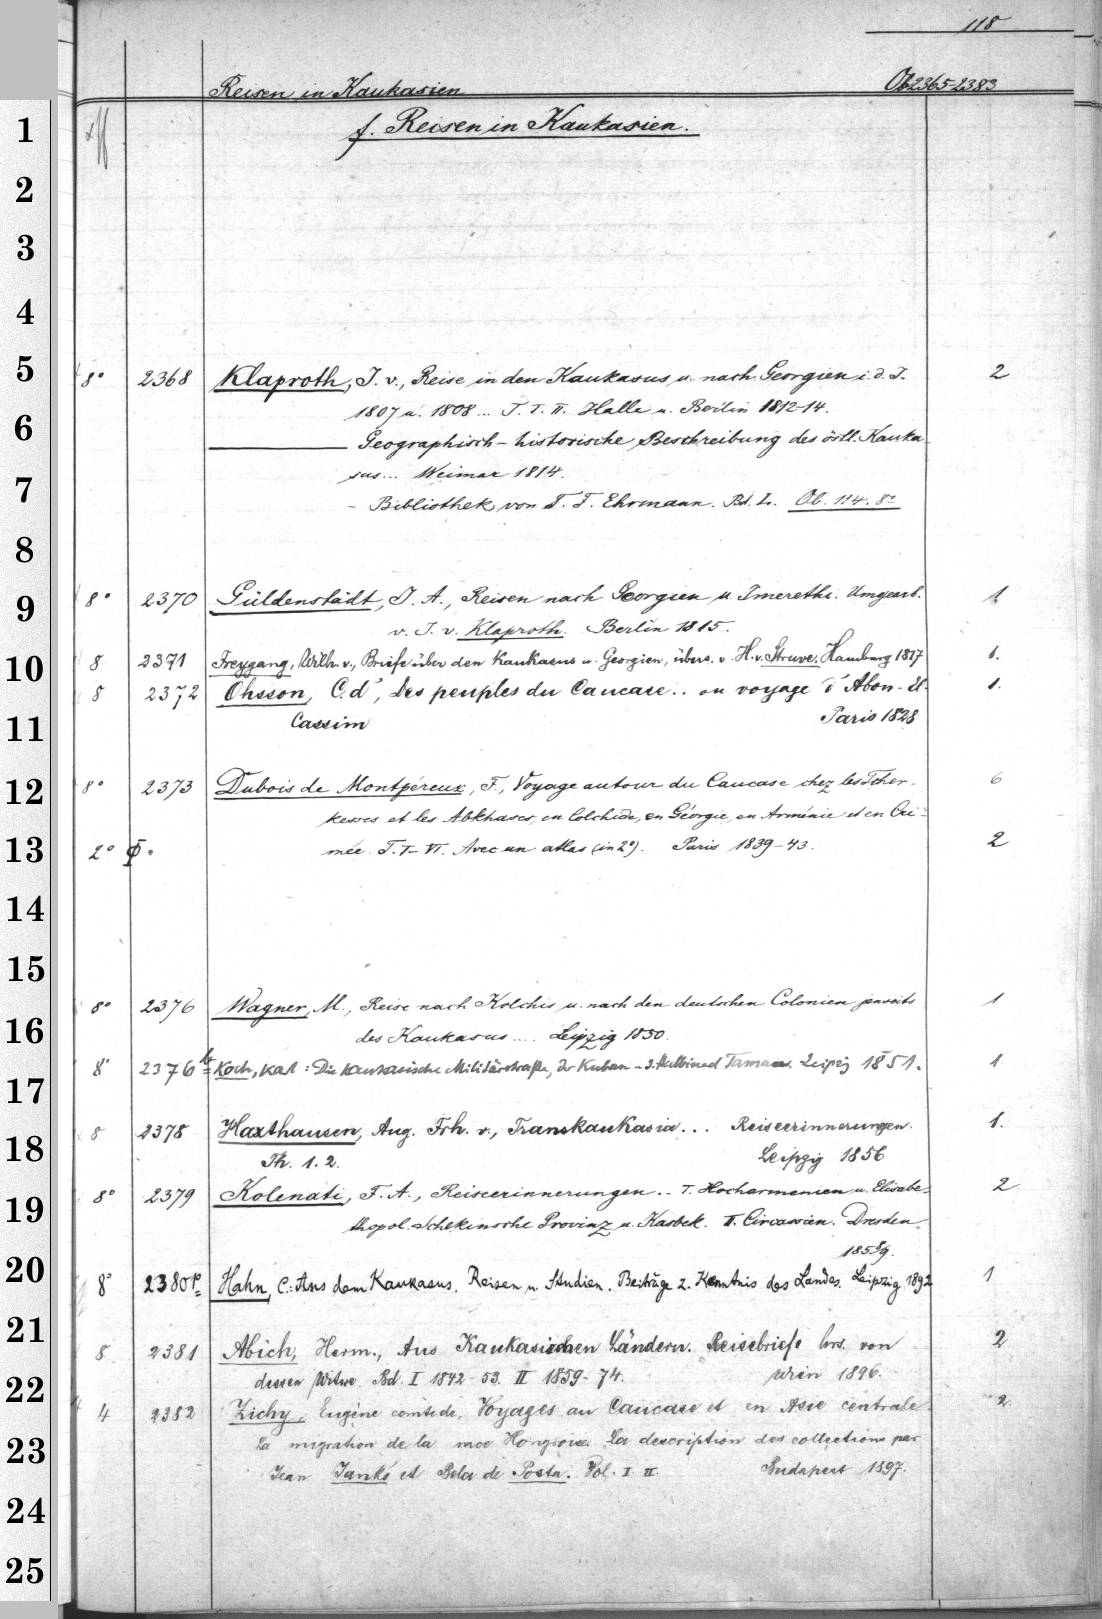 118
Reisen in Kaukasien Ob 2365-2383
1 f. Reisen in Kaukasien.
2
3
4
5 8° 2368 Klaproth, J. v., Reise in den Kaukasus u. nach Georgien i. d. J. 2
1807 u. 1808... T. I. II. Halle u. Berlin 1812-14.
6 Geographisch-historische Beschreibung des östl. Kauka-
sus... Weimar 1814.
7 - Bibliothek von T. F. Ehrmann. Bd. L. Ob. 114. 8°
8
9 8° 2370 Güldenstädt, J. A., Reisen nach Georgien u. Imerethi. Umgearb. 1
v. J. v. Klaproth. Berlin 1815.
10 8 2371 Freygang, Wilh. v., Briefe über den Kaukasus u. Georgien, übers. v. H. v. Struve. Hamburg 1817 1.
8 2372 Ohsson, C. d', Des peuples du Caucase.. ou voyage d'Abou-el- 1.
11 Cassim Paris 1828
12 8° 2373 Dubois de Montpéreux, F., Voyage autour du Caucase chez les Tcher- 6
kesses et les Abkhases, en Colchide, en Géorgie, en Arménie et en Cri-
13 2° Φ. mée. T. I-VI. Avec un atlas (in 2°). Paris 1839-43. 2
14
15
8° 2376 Wagner, M., Reise nach Kolchis u. nach den deutschen Colonien jenseits 1
16 des Kaukasus.... Leipzig 1850.
8° 2376b Koch, Karl: Die kaukasische Militärstraße, der Kuban u. d. Halbinsel Taman. Leipzig 1851. 1
17
8 2378 Haxthausen, Aug. Frh. v., Transkaukasia... Reiseerinnerungen. 1.
18 Th. 1. 2. Leipzig 1856
8° 2379 Kolenati, F. A., Reiseerinnerungen.. I. Hocharmenien u. Elisabe- 2
19 thopol. Schekinsche Provinz u. Kasbek. II. Circassien. Dresden
1858/9.
20 8° 2380 Hahn, C.: Aus dem Kaukasus. Reisen u. Studien. Beiträge z. Kenntnis des Landes. Leipzig 1892 1
21 8 2381 Abich, Herm., Aus Kaukasischen Ländern. Reisebriefe hrs. von 2
22 dessen Witwe. Bd. I 1842-53. II 1859-74. Wien 1896.
4 2382 Zichy, Eugène comte de, Voyages au Caucase et en Asie centrale. 2.
23 La migration de la race Hongroise. La description des collections par
Jean Jankó et Bela de Posta. Vol. I II. Budapest 1897.
24
25